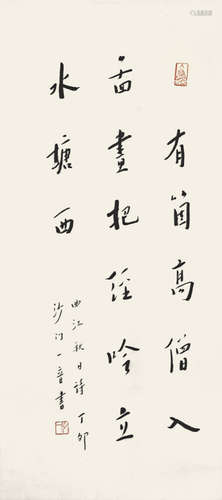 有箇高僧入
啚畫把經吟立
水塘西
曲江秋日詩 丁卯
沙門一音書